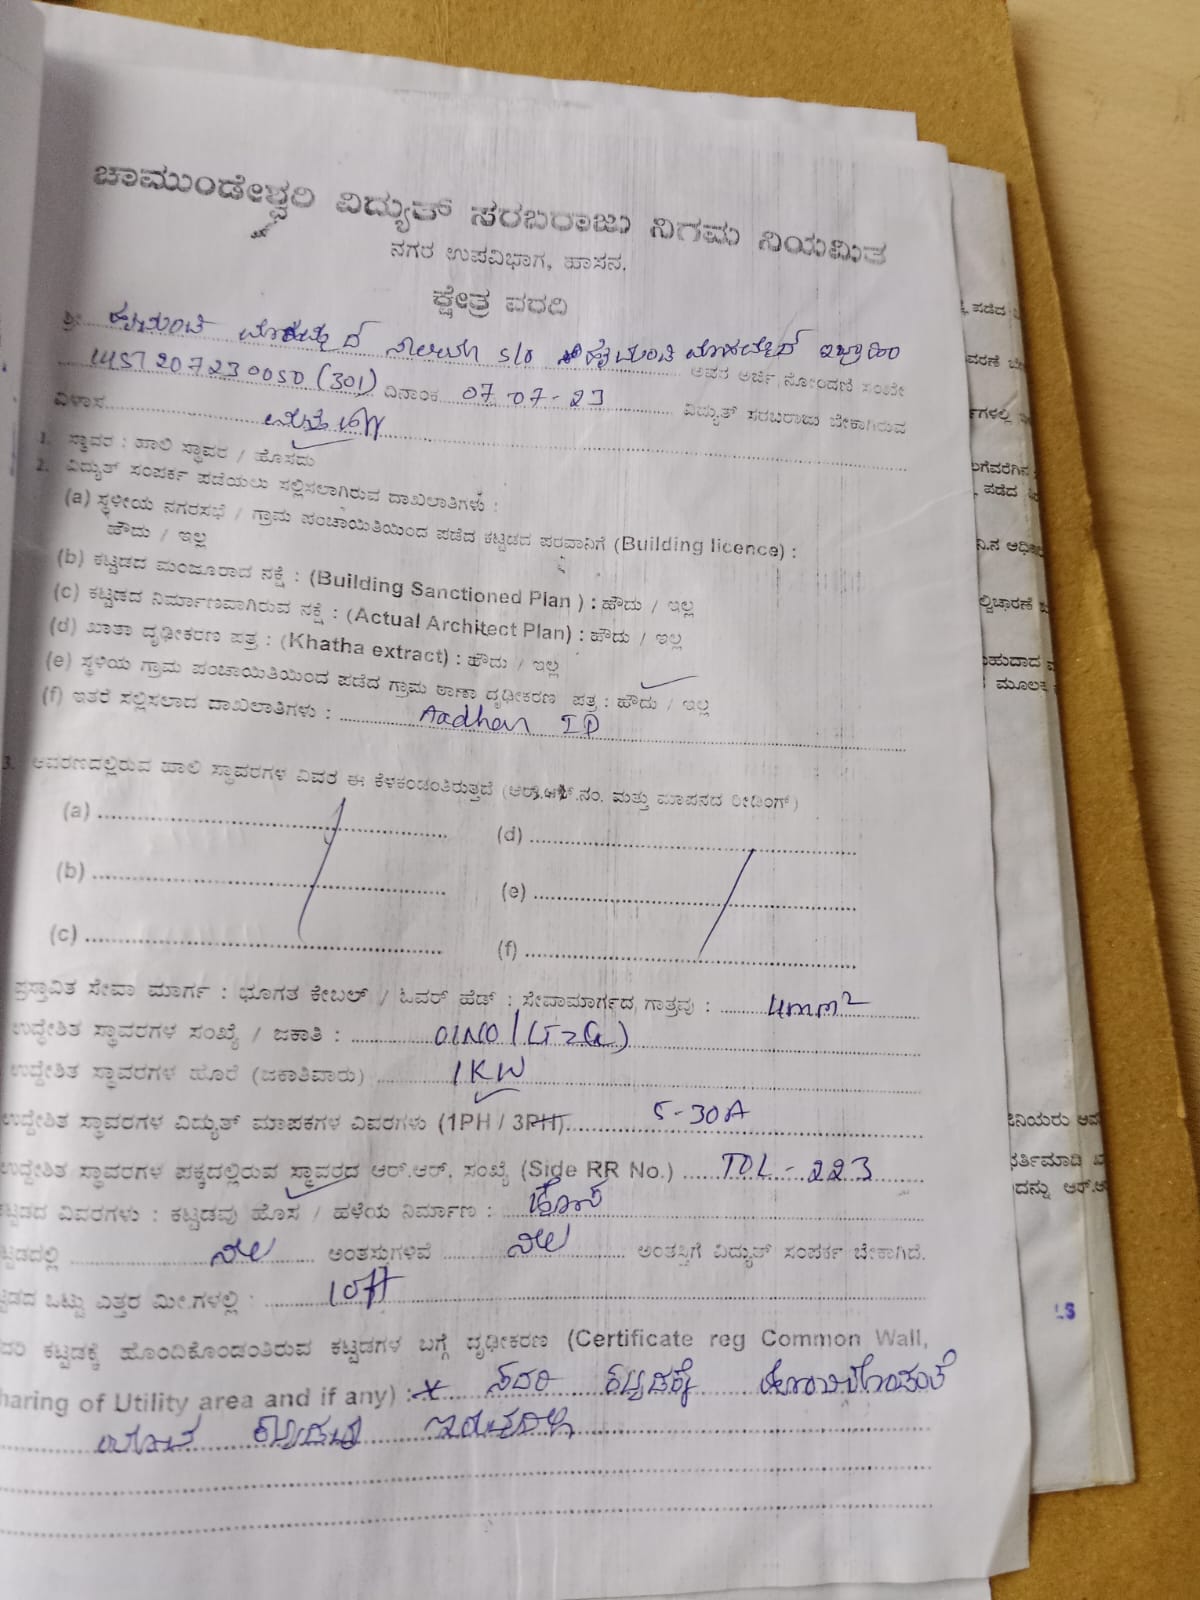 ಚಾಮುಂಡೇಶ್ವರಿ ವಿದ್ಯುತ್ ಸರಬರಾಜು ನಿಗಮ ನಿಯಮಿತ
ನಗರ ಉಪವಿಭಾಗ, ಹಾಸನ.
ಕ್ಷೇತ್ರ ವರದಿ
ಶ್ರೀ s/o
(301) ದಿನಾಂಕ 07-07-23 ಅವರ ಅರ್ಜಿ ನೋಂದಣಿ ಸಂಖ್ಯೆ
ವಿಳಾಸ ವಿದ್ಯುತ್ ಸರಬರಾಜು ಬೇಕಾಗಿರುವ
1. ಸ್ಥಾವರ : ಹಾಲಿ ಸ್ಥಾವರ / ಹೊಸದು
2. ವಿದ್ಯುತ್ ಸಂಪರ್ಕ ಪಡೆಯಲು ಸಲ್ಲಿಸಲಾಗಿರುವ ದಾಖಲಾತಿಗಳು :
(a) ಸ್ಥಳೀಯ ನಗರಸಭೆ / ಗ್ರಾಮ ಪಂಚಾಯಿತಿಯಿಂದ ಪಡೆದ ಕಟ್ಟಡದ ಪರವಾನಿಗೆ (Building licence) :
ಹೌದು / ಇಲ್ಲ
(b) ಕಟ್ಟಡದ ಮಂಜೂರಾದ ನಕ್ಷೆ : (Building Sanctioned Plan ) : ಹೌದು / ಇಲ್ಲ
(c) ಕಟ್ಟಡದ ನಿರ್ಮಾಣವಾಗಿರುವ ನಕ್ಷೆ : (Actual Architect Plan) : ಹೌದು / ಇಲ್ಲ
(d) ಖಾತಾ ದೃಢೀಕರಣ ಪತ್ರ : (Khatha extract) : ಹೌದು / ಇಲ್ಲ
(e) ಸ್ಥಳಿಯ ಗ್ರಾಮ ಪಂಚಾಯಿತಿಯಿಂದ ಪಡೆದ ಗ್ರಾಮ ಠಾಣಾ ದೃಢೀಕರಣ ಪತ್ರ : ಹೌದು / ಇಲ್ಲ
(f) ಇತರೆ ಸಲ್ಲಿಸಲಾದ ದಾಖಲಾತಿಗಳು : Aadhar ID
3. ಆವರಣದಲ್ಲಿರುವ ಹಾಲಿ ಸ್ಥಾವರಗಳ ವಿವರ ಈ ಕೆಳಕಂಡಂತಿರುತ್ತದೆ (ಆರ್.ಆರ್.ನಂ. ಮತ್ತು ಮಾಪನದ ರೀಡಿಂಗ್)
(a) (d)
(b) (e)
(c) (f)
ಪ್ರಸ್ತಾವಿತ ಸೇವಾ ಮಾರ್ಗ : ಭೂಗತ ಕೇಬಲ್ / ಓವರ್ ಹೆಡ್ : ಸೇವಾಮಾರ್ಗದ ಗಾತ್ರವು : 4mm2
ಉದ್ದೇಶಿತ ಸ್ಥಾವರಗಳ ಸಂಖ್ಯೆ / ಜಕಾತಿ : 01NO
ಉದ್ದೇಶಿತ ಸ್ಥಾವರಗಳ ಹೊರೆ (ಜಕಾತಿವಾರು) 1KW
ಉದ್ದೇಶಿತ ಸ್ಥಾವರಗಳ ವಿದ್ಯುತ್ ಮಾಪಕಗಳ ವಿವರಗಳು (1PH / 3PH) 5-30A
ಉದ್ದೇಶಿತ ಸ್ಥಾವರಗಳ ಪಕ್ಕದಲ್ಲಿರುವ ಸ್ಥಾವರದ ಆರ್.ಆರ್. ಸಂಖ್ಯೆ (Side RR No.) TDL-223
ಕಟ್ಟಡದ ವಿವರಗಳು : ಕಟ್ಟಡವು ಹೊಸ / ಹಳೆಯ ನಿರ್ಮಾಣ : ಹೊಸ
ನೀಲ ಅಂತಸ್ತುಗಳಿವೆ ನೀಲ ಅಂತಸ್ತಿಗೆ ವಿದ್ಯುತ್ ಸಂಪರ್ಕ ಬೇಕಾಗಿದೆ.
ಒಟ್ಟು ಎತ್ತರ ಮೀ.ಗಳಲ್ಲಿ : 10ft
ಕಟ್ಟಡಕ್ಕೆ ಹೊಂದಿಕೊಂಡಂತಿರುವ ಕಟ್ಟಡಗಳ ಬಗ್ಗೆ ದೃಢೀಕರಣ (Certificate reg Common Wall,
haring of Utility area and if any) : ಸದರಿ ಕಟ್ಟಡಕ್ಕೆ ಹೊಂದಿಕೊಂಡಂತೆ
ಯಾವ ಕಟ್ಟಡವು ಇರುವುದಿಲ್ಲ